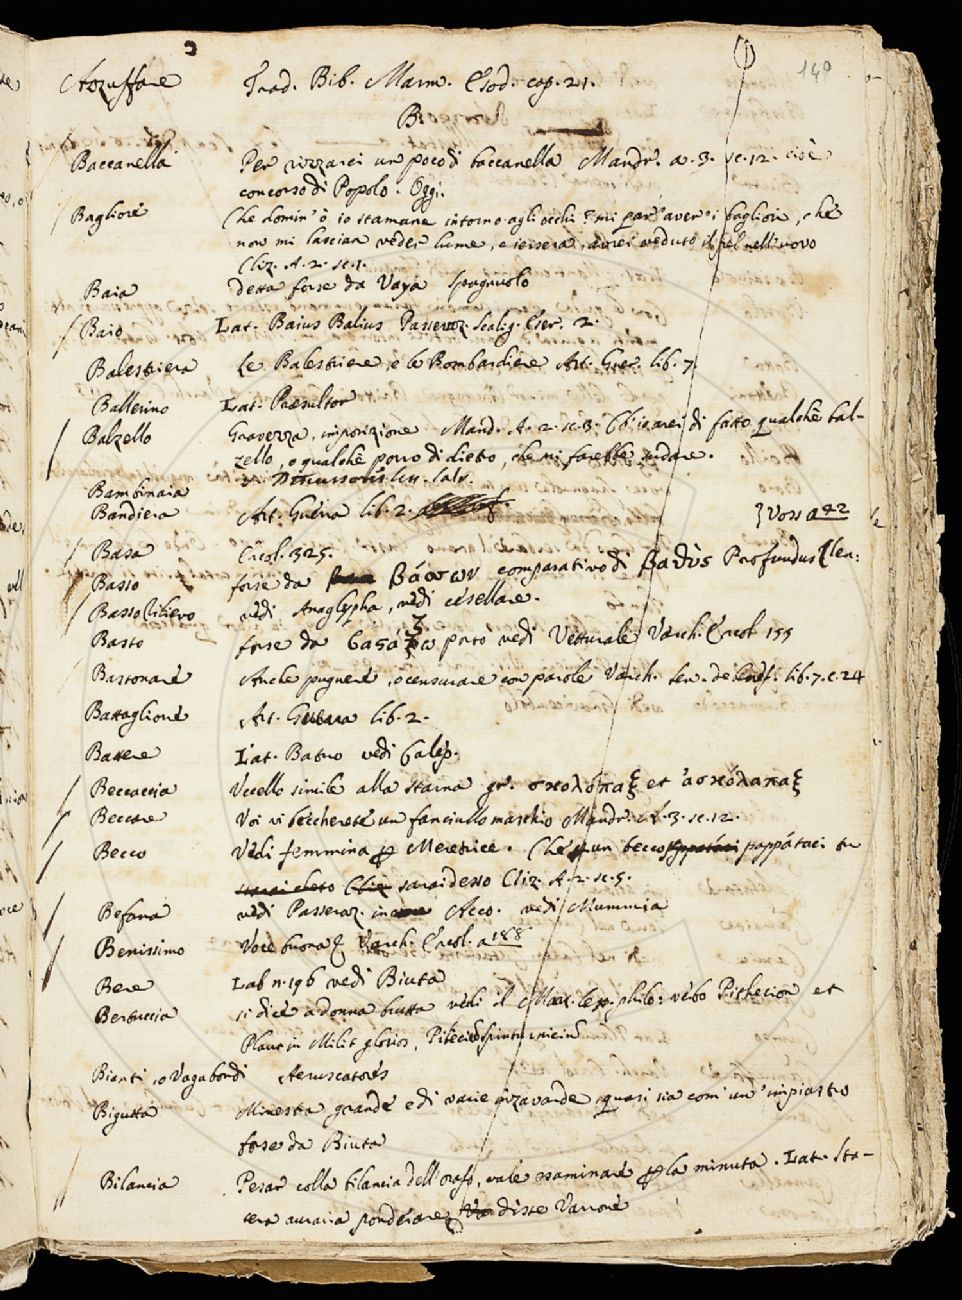 140
Azzuffare Trad. Bib. Marm. Esod. cap. 21.
B
Baccanella Per rizzarci un poco di baccanella Mandr. a. 3. sc. 12. cioè
concorso di Popolo. Oggi.
Bagliore Che domin' ò io stamane intorno agli occhi? mi par' aver i bagliori, che
non mi lascian veder lume, e iersera, avrei veduto il pel nell'uovo
Cliz. A. 2. sc. 1.
Baia detta forse da Vaya Spagnuolo
Baio Lat. Baius Balius Passeraz. Scalig. Eser. 2.
Balestriera Le Balestriere, e le Bombardiere Art. Guer. lib. 7.
Ballerino Lat. Præsultor
Balzello Gravezza, imposizione Mand. A. 2. sc. 3. di fatto qualche bal-
zello, o qualche porro di dietro, che mi farebbe sudare.
Bambinaia
Bandiera Art. Guerra lib. 2.
Voss a 42
Basa Ercol. 325.
Basso forse da βάσσων comparativo di βαθὺς Profundus
Basso Rilievo vedi Anaglypha, vedi cesellare.
Basto forse da porto vedi Vetturale Varch. Ercol 155
Bastonare Anche pugnere, o censurare con parole Varch. Sen. de benef. lib. 7. c. 24
Battaglione Art. Guerra lib. 2.
Battere Lat. Batuo vedi Calep.
Beccaccia Uccello simile alla starna gr. σκολόπαξ et ἀσκόλαπαξ
Beccare Voi vi beccherete un fanciullo maschio Mandr. A. 3. sc. 12.
Becco Vedi femmina Meretrice. Che un becco pappataci tu
sarai desso Cliz. A. 2. sc. 5.
Befana vedi Passeraz. in Acco. vedi Mummia
Benissimo Voce buona Varch. Ercol. a 188
Bere Lab n. 196 vedi Biuta
Bertuccia si dice a donna brutta vedi il Mart. lex. phil: verbo Pithecion et
Plaut in Milit glorios.
Bianti, o Vagabondi Aeruscatores
Bigutta Minestra grande e di varie vivande quasi sia com' un' impiastro
forse da Biuta
Bilancia Pesar colla bilancia dell'orafo, vale esaminare la minuta. Lat. Sta-
tera auraria ponderare disse Varrone